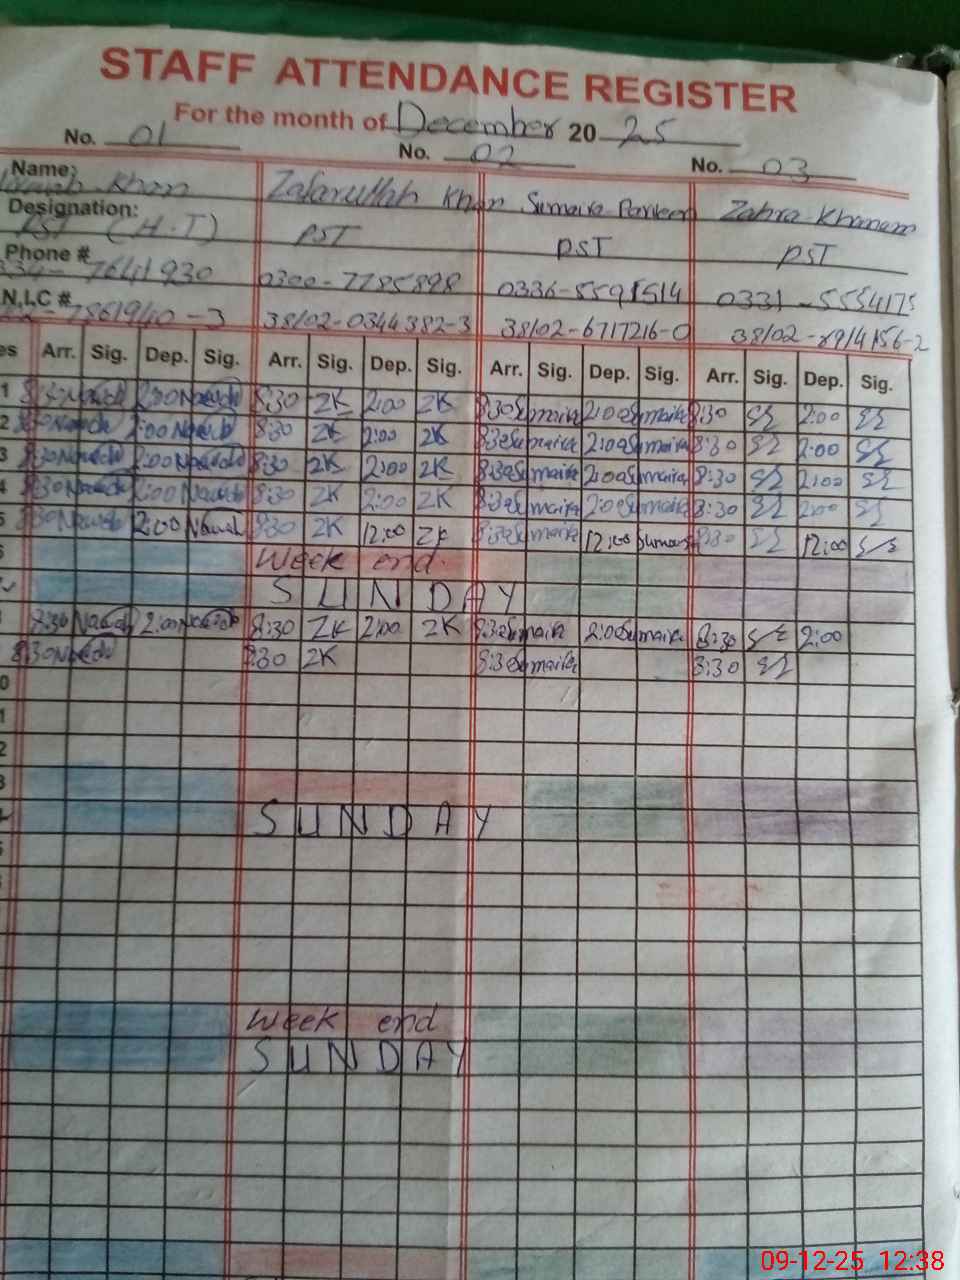 STAFF ATTENDANCE REGISTER
For the month of December 20 25
No. 01 No. 02 No. 03
Name: Khan Zafarullah Khan Sumaira Parveen Zahra Khanam
Designation: PST (H.T) PST PST PST
Phone # 7641930 0300-7785898 0336-5591514 0331-555417
N.I.C # 7861940-3 38102-0344382-3 38102-6717216-0 38102-8914156-2
es Arr. Sig. Dep. Sig. Arr. Sig. Dep. Sig. Arr. Sig. Dep. Sig. Arr. Sig. Dep. Sig.
1 8:30 2:00 8:30 ZK 2:00 ZK 8:30 Sumaira 2:00 Sumaira 8:30 2:00
2 8:30 2:00 8:30 ZK 2:00 ZK 8:30 Sumaira 2:00 Sumaira 8:30 2:00
3 8:30 2:00 8:30 ZK 2:00 ZK 8:30 Sumaira 2:00 Sumaira 8:30 2:00
4 8:30 2:00 8:30 ZK 2:00 ZK 8:30 Sumaira 2:00 Sumaira 8:30 2:00
5 8:30 2:00 8:30 ZK 12:00 ZK 8:30 Sumaira 12:00 Sumaira 8:30 12:00
Week end
SUNDAY
8:30 2:00 8:30 ZK 2:00 ZK 8:30 Sumaira 2:00 Sumaira 8:30 2:00
8:30 8:30 ZK 8:30 Sumaira 8:30
0
1
2
3
SUNDAY
5
Week end
SUNDAY
09-12-25 12:38